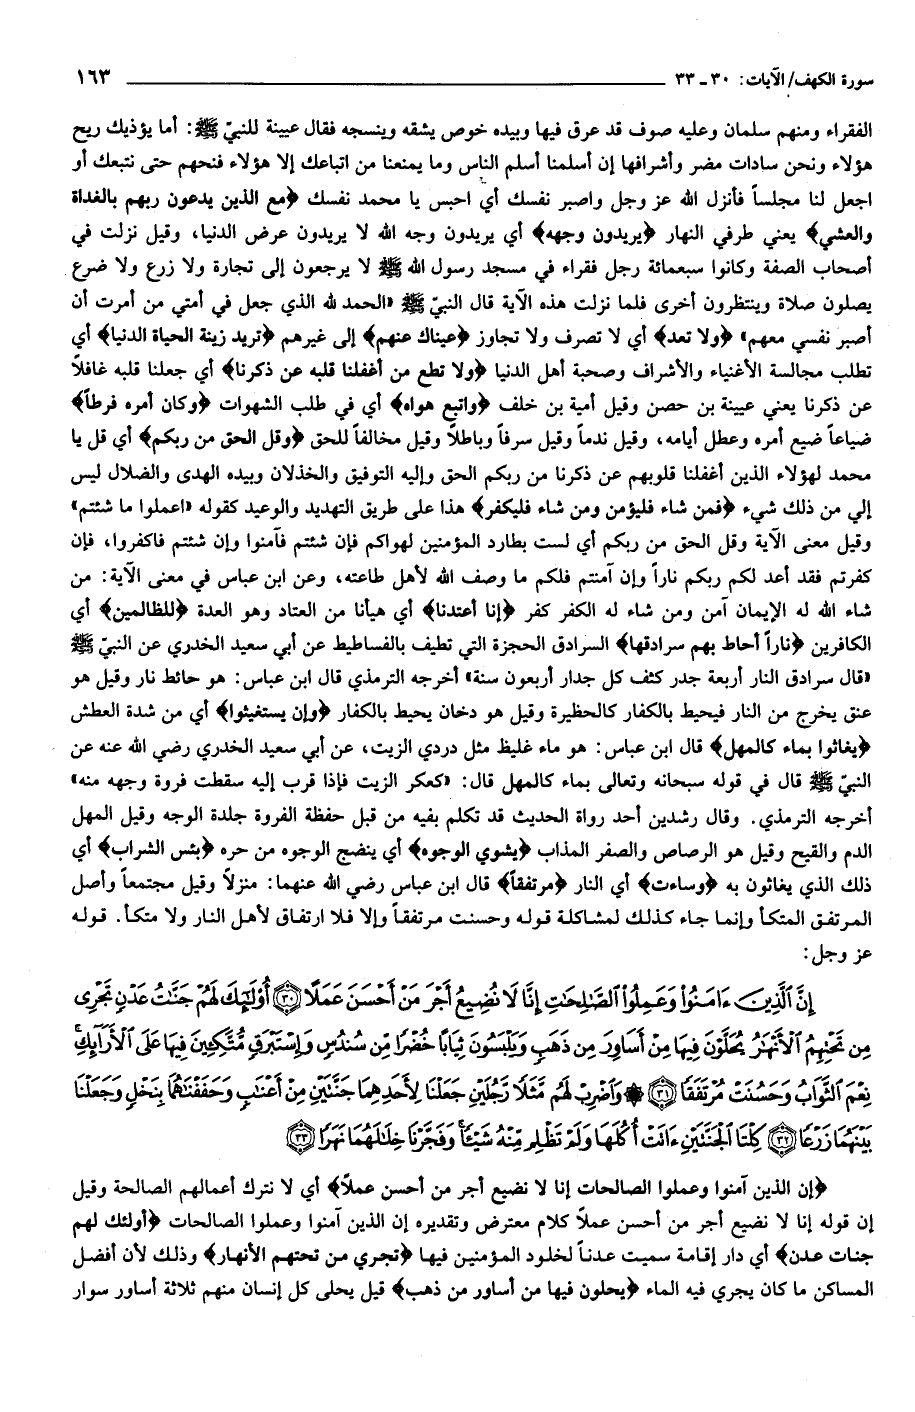 سورة الكهف/ الآيات: ٣٠ ـ ٣٣ ١٦٣
الفقراء ومنهم سلمان وعليه صوف قد عرق فيها وبيده خوص يشقه وينسجه فقال عيينة للنبيّ ﷺ: أما يؤذيك ريح
هؤلاء ونحن سادات مضر وأشرافها إن أسلمنا أسلم الناس وما يمنعنا من اتباعك إلا هؤلاء فنحهم حتى نتبعك أو
اجعل لنا مجلساً فأنزل الله عز وجل واصبر نفسك أي احبس يا محمد نفسك ﴿مع الذين يدعون ربهم بالغداة
والعشي﴾ يعني طرفي النهار ﴿يريدون وجهه﴾ أي يريدون وجه الله لا يريدون عرض الدنيا، وقيل نزلت في
أصحاب الصفة وكانوا سبعمائة رجل فقراء في مسجد رسول الله ﷺ لا يرجعون إلى تجارة ولا زرع ولا ضرع
يصلون صلاة وينتظرون أخرى فلما نزلت هذه الآية قال النبيّ ﷺ «الحمد لله الذي جعل في أمتي من أمرت أن
أصبر نفسي معهم» ﴿ولا تعد﴾ أي لا تصرف ولا تجاوز ﴿عيناك عنهم﴾ إلى غيرهم ﴿تريد زينة الحياة الدنيا﴾ أي
تطلب مجالسة الأغنياء والأشراف وصحبة أهل الدنيا ﴿ولا تطع من أغفلنا قلبه عن ذكرنا﴾ أي جعلنا قلبه غافلاً
عن ذكرنا يعني عيينة بن حصن وقيل أمية بن خلف ﴿واتبع هواه﴾ أي في طلب الشهوات ﴿وكان أمره فرطاً﴾
ضياعاً ضيع أمره وعطل أيامه، وقيل ندماً وقيل سرفاً وباطلاً وقيل مخالفاً للحق ﴿وقل الحق من ربكم﴾ أي قل يا
محمد لهؤلاء الذين أغفلنا قلوبهم عن ذكرنا من ربكم الحق وإليه التوفيق والخذلان وبيده الهدى والضلال ليس
إلي من ذلك شيء ﴿فمن شاء فليؤمن ومن شاء فليكفر﴾ هذا على طريق التهديد والوعيد كقوله «اعملوا ما شئتم»
وقيل معنى الآية وقل الحق من ربكم أي لست بطارد المؤمنين لهواكم فإن شئتم فآمنوا وإن شئتم فاكفروا، فإن
كفرتم فقد أعد لكم ربكم ناراً وإن آمنتم فلكم ما وصف الله لأهل طاعته، وعن ابن عباس في معنى الآية: من
شاء الله له الإيمان آمن ومن شاء له الكفر كفر ﴿إنا أعتدنا﴾ أي هيأنا من العتاد وهو العدة ﴿للظالمين﴾ أي
الكافرين ﴿ناراً أحاط بهم سرادقها﴾ السرادق الحجزة التي تطيف بالفساطيط عن أبي سعيد الخدري عن النبيّ ﷺ
«قال سرادق النار أربعة جدر كثف كل جدار أربعون سنة» أخرجه الترمذي قال ابن عباس: هو حائط نار وقيل هو
عنق يخرج من النار فيحيط بالكفار كالحظيرة وقيل هو دخان يحيط بالكفار ﴿وإن يستغيثوا﴾ أي من شدة العطش
﴿يغاثوا بماء كالمهل﴾ قال ابن عباس: هو ماء غليظ مثل دردي الزيت، عن أبي سعيد الخدري رضي الله عنه عن
النبيّ ﷺ قال في قوله سبحانه وتعالى بماء كالمهل قال: «كعكر الزيت فإذا قرب إليه سقطت فروة وجهه منه»
أخرجه الترمذي. وقال رشدين أحد رواة الحديث قد تكلم بفيه من قبل حفظة الفروة جلدة الوجه وقيل المهل
الدم والقيح وقيل هو الرصاص والصفر المذاب ﴿يشوي الوجوه﴾ أي ينضج الوجوه من حره ﴿بئس الشراب﴾ أي
ذلك الذي يغاثون به ﴿وساءت﴾ أي النار ﴿مرتفقاً﴾ قال ابن عباس رضي الله عنهما: منزلاً وقيل مجتمعاً وأصل
المرتفق المتكأ وإنما جاء كذلك لمشاكلة قوله وحسنت مرتفقاً وإلا فلا ارتفاق لأهل النار ولا متكأ. قوله
عز وجل:
إِنَّ ٱلَّذِينَ ءَامَنُوا۟ وَعَمِلُوا۟ ٱلصَّٰلِحَٰتِ إِنَّا لَا نُضِيعُ أَجْرَ مَنْ أَحْسَنَ عَمَلًا ﴿٣٠﴾ أُو۟لَٰٓئِكَ لَهُمْ جَنَّٰتُ عَدْنٍ تَجْرِى
مِن تَحْتِهِمُ ٱلْأَنْهَٰرُ يُحَلَّوْنَ فِيهَا مِنْ أَسَاوِرَ مِن ذَهَبٍ وَيَلْبَسُونَ ثِيَابًا خُضْرًا مِّن سُندُسٍ وَإِسْتَبْرَقٍ مُّتَّكِـِٔينَ فِيهَا عَلَى ٱلْأَرَآئِكِ ۚ
نِعْمَ ٱلثَّوَابُ وَحَسُنَتْ مُرْتَفَقًا ﴿٣١﴾ ۞ وَٱضْرِبْ لَهُم مَّثَلًا رَّجُلَيْنِ جَعَلْنَا لِأَحَدِهِمَا جَنَّتَيْنِ مِنْ أَعْنَٰبٍ وَحَفَفْنَٰهُمَا بِنَخْلٍ وَجَعَلْنَا
بَيْنَهُمَا زَرْعًا ﴿٣٢﴾ كِلْتَا ٱلْجَنَّتَيْنِ ءَاتَتْ أُكُلَهَا وَلَمْ تَظْلِم مِّنْهُ شَيْـًٔا ۚ وَفَجَّرْنَا خِلَٰلَهُمَا نَهَرًا ﴿٣٣﴾
﴿إن الذين آمنوا وعملوا الصالحات إنا لا نضيع أجر من أحسن عملاً﴾ أي لا نترك أعمالهم الصالحة وقيل
إن قوله إنا لا نضيع أجر من أحسن عملاً كلام معترض وتقديره إن الذين آمنوا وعملوا الصالحات ﴿أولئك لهم
جنات عدن﴾ أي دار إقامة سميت عدناً لخلود المؤمنين فيها ﴿تجري من تحتهم الأنهار﴾ وذلك لأن أفضل
المساكن ما كان يجري فيه الماء ﴿يحلون فيها من أساور من ذهب﴾ قيل يحلى كل إنسان منهم ثلاثة أساور سوار